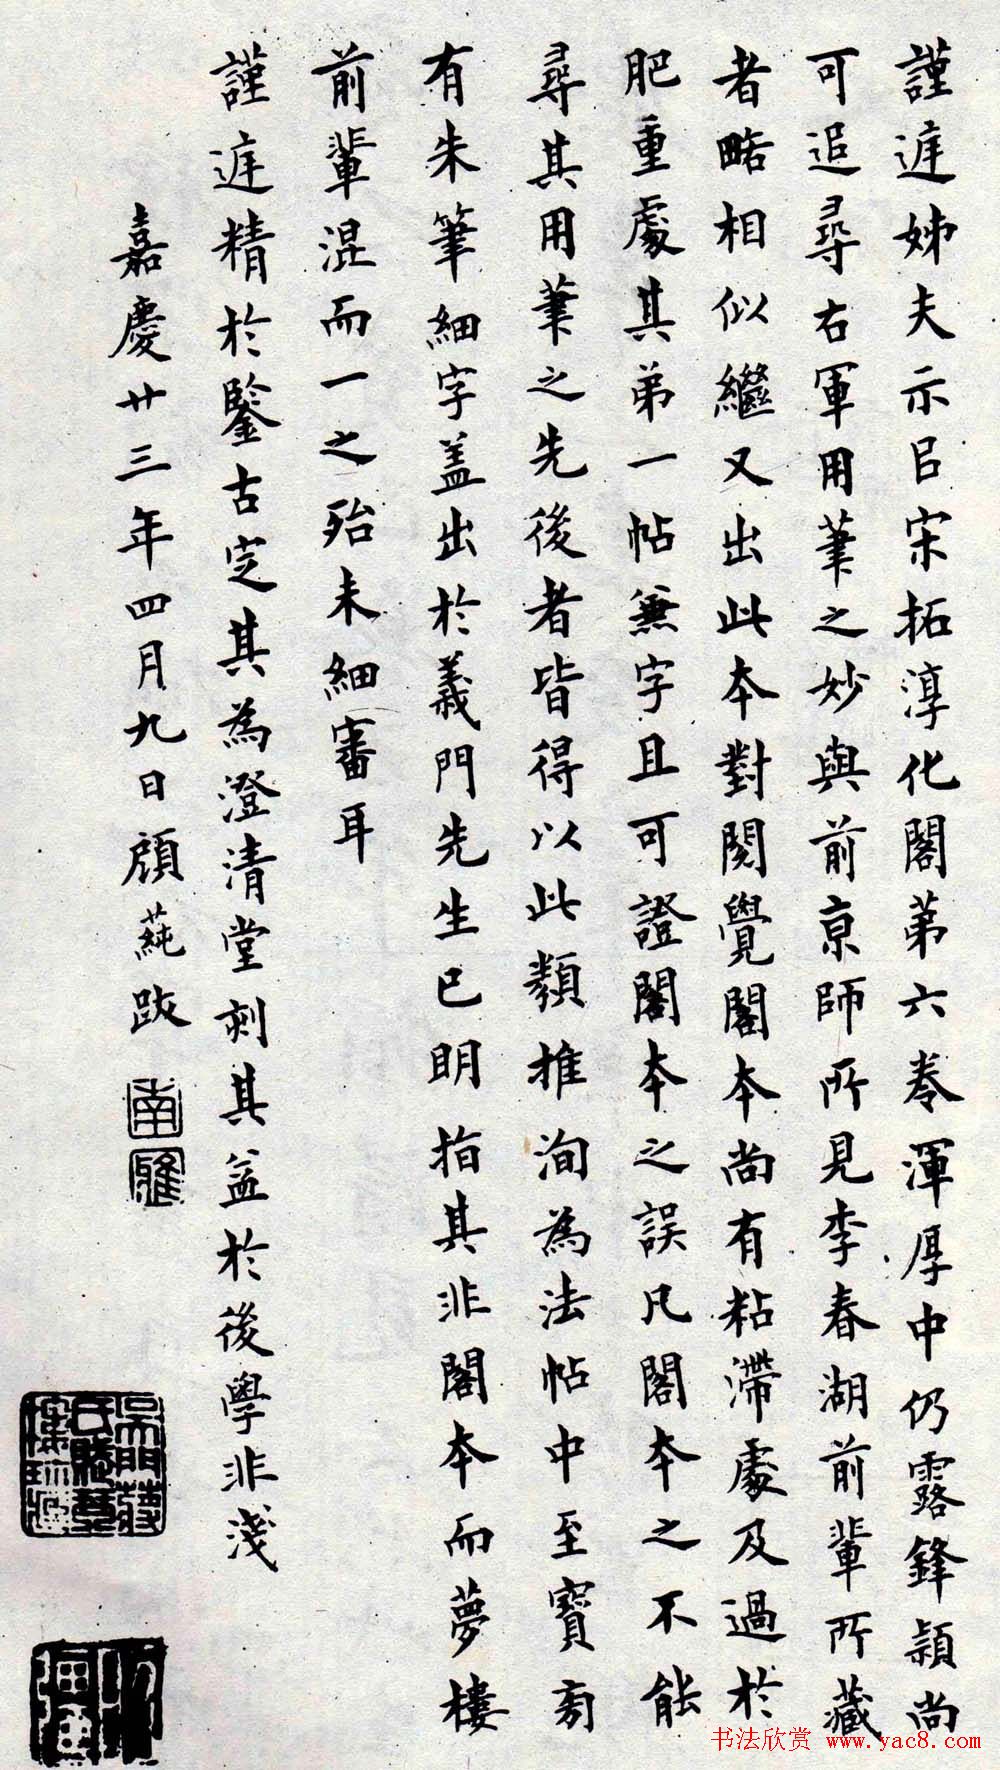 謹庭姊夫示㠯宋拓淳化閣第六卷渾厚中仍露鋒穎尚
可追尋右軍用筆之妙與前京師所見李春湖前輩所藏
者略相似繼又出此本對閱覺閣本尚有粘滯處及過於
肥重處其弟一帖無字且可證閣本之誤凡閣本之不能
尋其用筆之先後者皆得以此類推洵為法帖中至寶旁
有朱筆細字蓋出於義門先生已明指其非閣本而夢樓
前輩混而一之殆未細審耳
謹庭精於鑒古定其為澄清堂刻其益於後學非淺
嘉慶廿三年四月九日顧蒓跋
南雅
书法欣赏 www.yac8.com